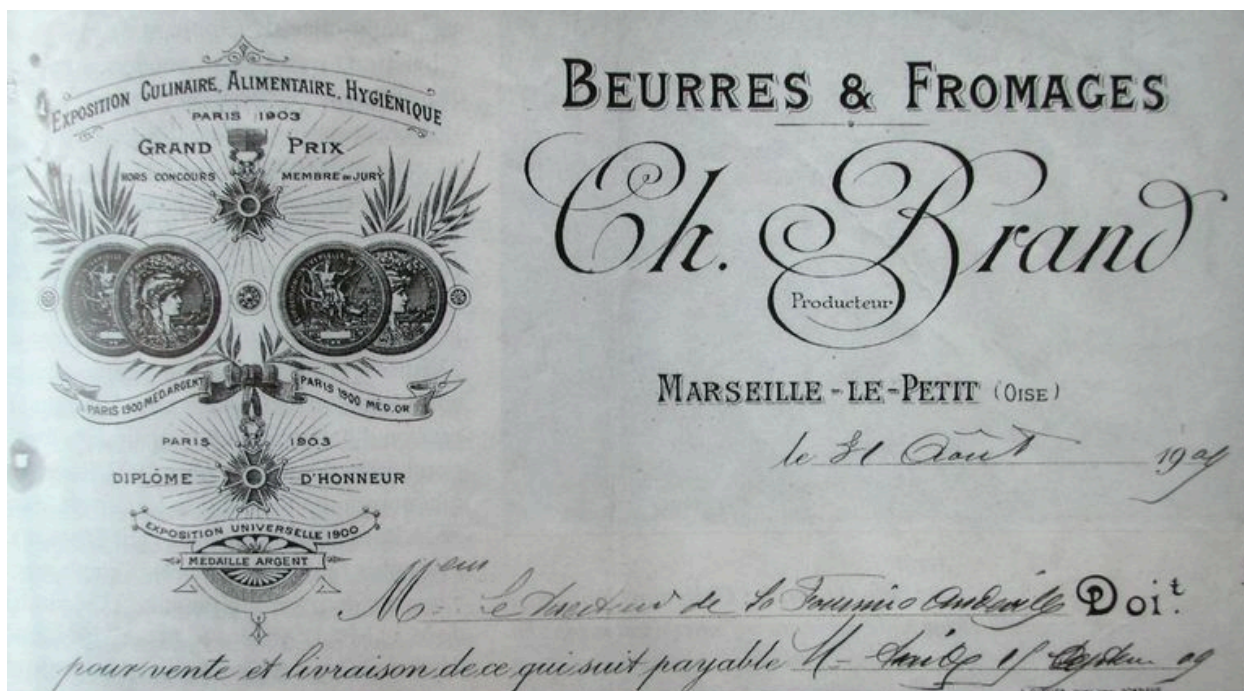 EXPOSITION CULINAIRE, ALIMENTAIRE, HYGIÉNIQUE
PARIS 1903
GRAND PRIX
HORS CONCOURS MEMBRE DU JURY
PARIS 1900 MÉD. ARGENT
PARIS 1900 MÉD. OR
PARIS 1903
DIPLÔME D'HONNEUR
EXPOSITION UNIVERSELLE 1900
MÉDAILLE ARGENT
BEURRES & FROMAGES
Ch. Brand
Producteur
MARSEILLE-LE-PETIT (OISE)
le 31 Août 1909
M de Doit.
pour vente et livraison de ce qui suit payable 09